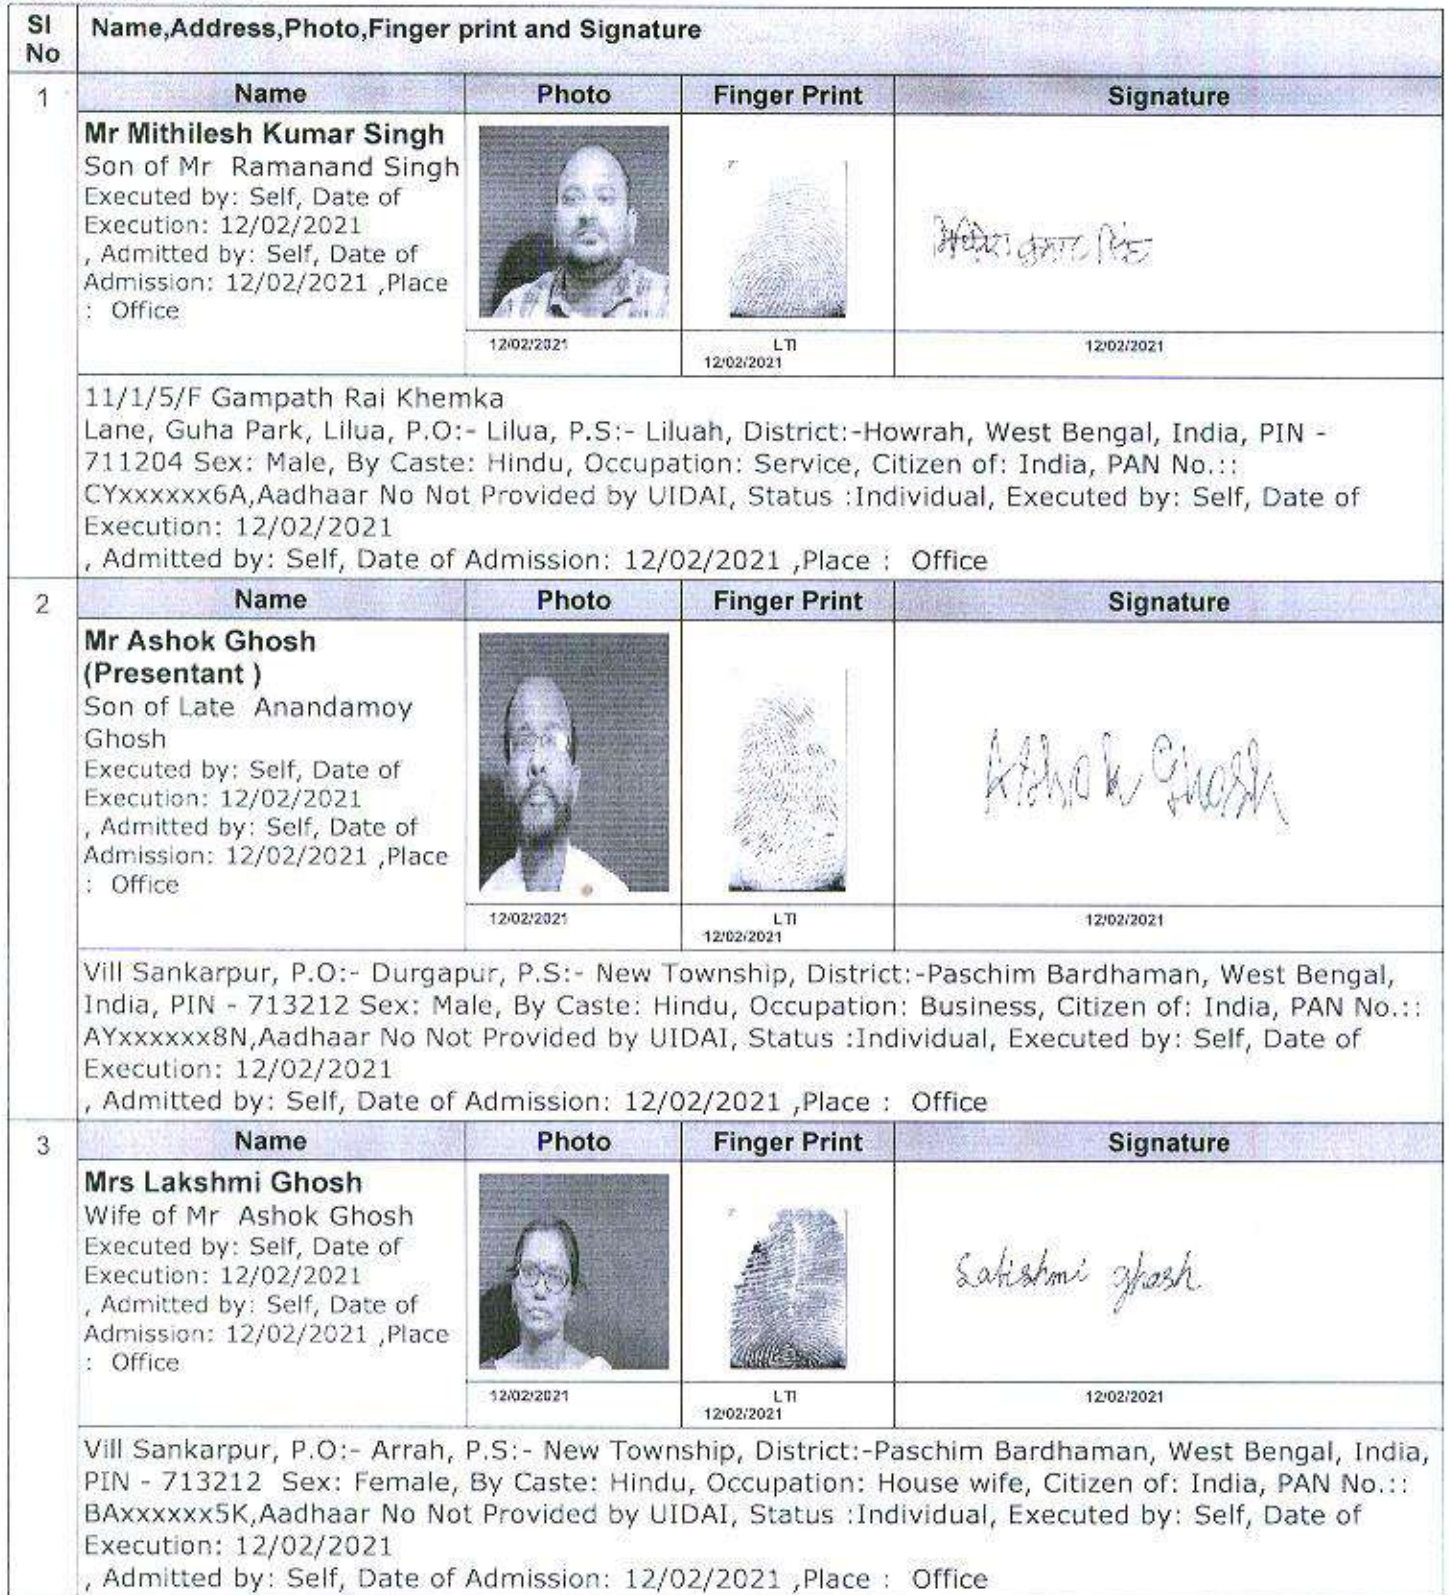 Sl No Name,Address,Photo,Finger print and Signature
1 Name Photo Finger Print Signature
Mr Mithilesh Kumar Singh
Son of Mr Ramanand Singh
Executed by: Self, Date of
Execution: 12/02/2021
, Admitted by: Self, Date of
Admission: 12/02/2021 ,Place
: Office
12/02/2021 LTI 12/02/2021 12/02/2021
11/1/5/F Gampath Rai Khemka
Lane, Guha Park, Lilua, P.O:- Lilua, P.S:- Liluah, District:-Howrah, West Bengal, India, PIN -
711204 Sex: Male, By Caste: Hindu, Occupation: Service, Citizen of: India, PAN No.::
CYxxxxxx6A,Aadhaar No Not Provided by UIDAI, Status :Individual, Executed by: Self, Date of
Execution: 12/02/2021
, Admitted by: Self, Date of Admission: 12/02/2021 ,Place : Office
2 Name Photo Finger Print Signature
Mr Ashok Ghosh
(Presentant )
Son of Late Anandamoy
Ghosh
Executed by: Self, Date of
Execution: 12/02/2021
, Admitted by: Self, Date of
Admission: 12/02/2021 ,Place
: Office
Ashok Ghosh
12/02/2021 LTI 12/02/2021 12/02/2021
Vill Sankarpur, P.O:- Durgapur, P.S:- New Township, District:-Paschim Bardhaman, West Bengal,
India, PIN - 713212 Sex: Male, By Caste: Hindu, Occupation: Business, Citizen of: India, PAN No.::
AYxxxxxx8N,Aadhaar No Not Provided by UIDAI, Status :Individual, Executed by: Self, Date of
Execution: 12/02/2021
, Admitted by: Self, Date of Admission: 12/02/2021 ,Place : Office
3 Name Photo Finger Print Signature
Mrs Lakshmi Ghosh
Wife of Mr Ashok Ghosh
Executed by: Self, Date of
Execution: 12/02/2021
, Admitted by: Self, Date of
Admission: 12/02/2021 ,Place
: Office
ghosh
12/02/2021 LTI 12/02/2021 12/02/2021
Vill Sankarpur, P.O:- Arrah, P.S:- New Township, District:-Paschim Bardhaman, West Bengal, India,
PIN - 713212 Sex: Female, By Caste: Hindu, Occupation: House wife, Citizen of: India, PAN No.::
BAxxxxxx5K,Aadhaar No Not Provided by UIDAI, Status :Individual, Executed by: Self, Date of
Execution: 12/02/2021
, Admitted by: Self, Date of Admission: 12/02/2021 ,Place : Office